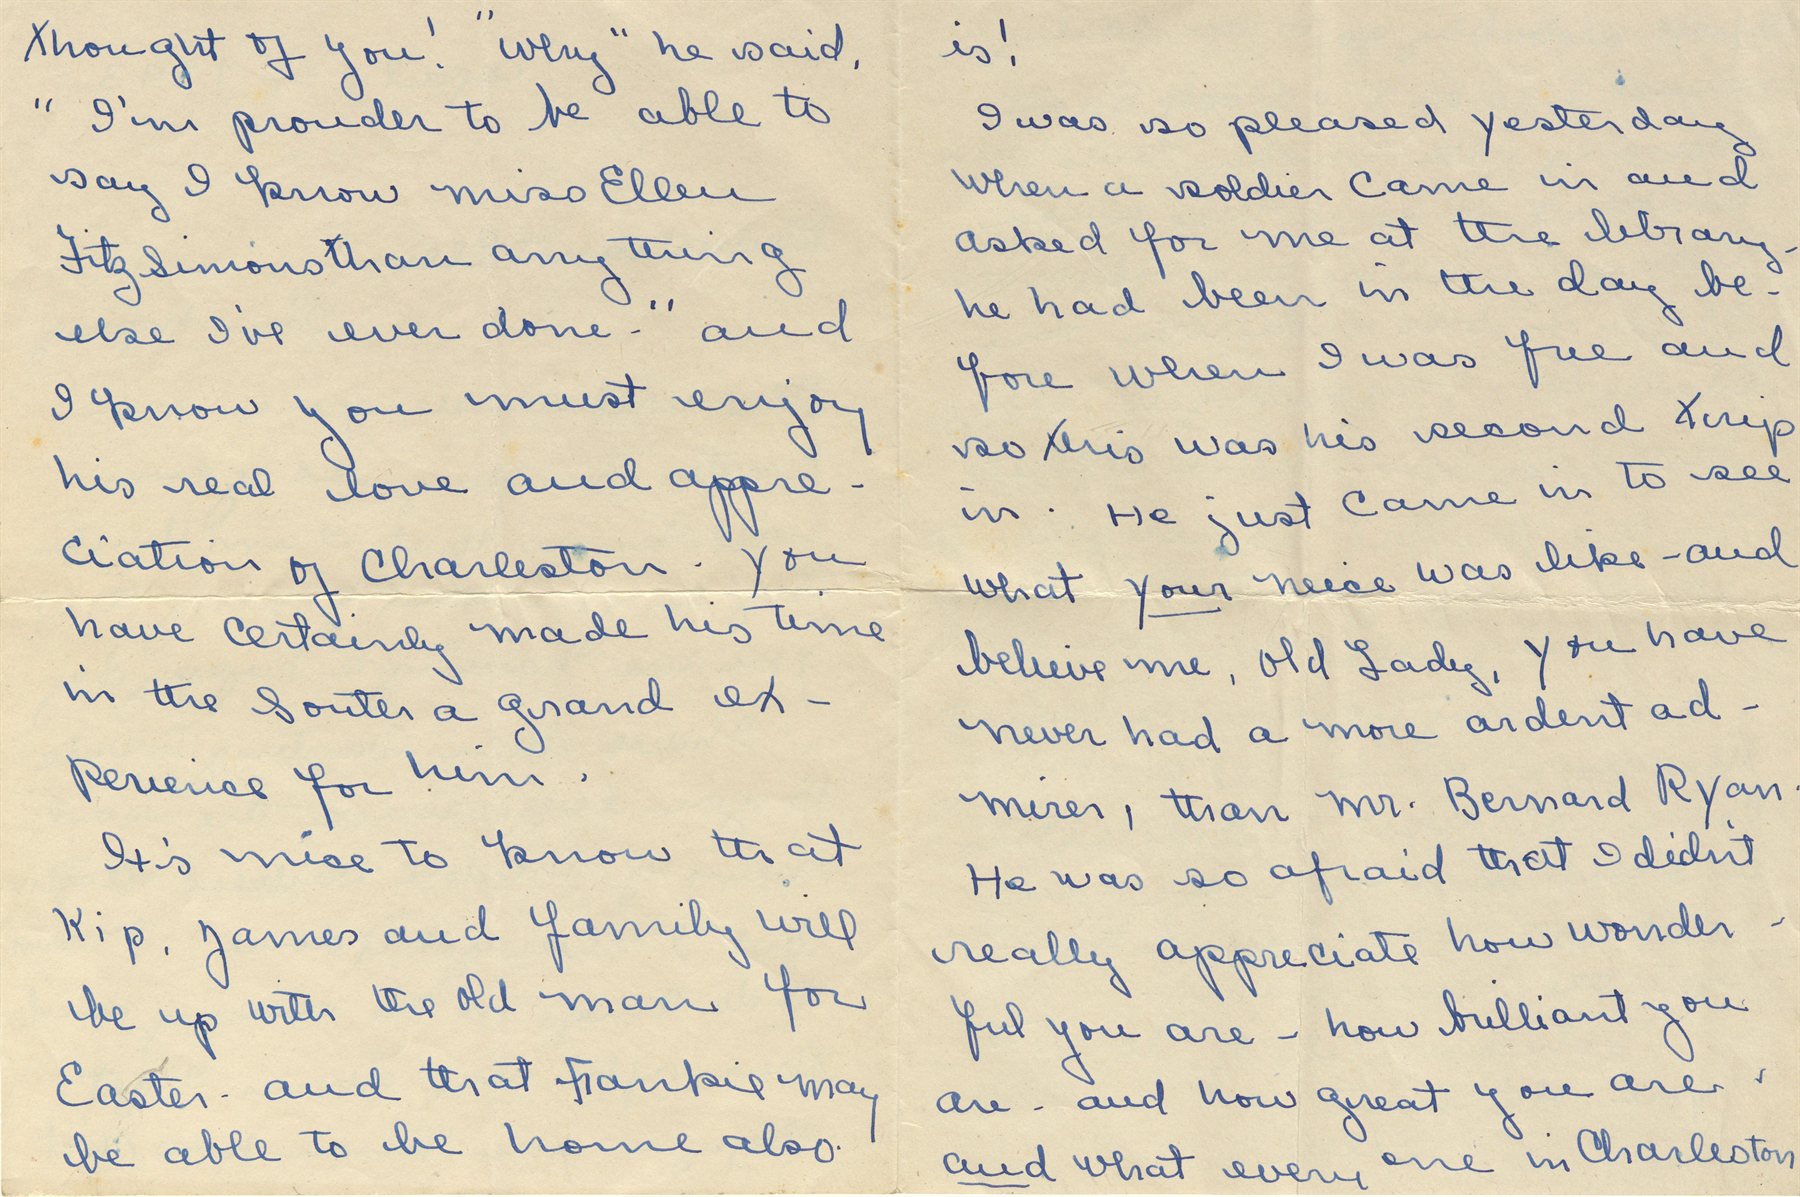 thought of you! "Why" he said,
"I'm prouder to be able to
say I know Miss Ellen
FitzSimons than anything
else I've ever done-" and
I know you must enjoy
his real love and appre-
ciation of Charleston. You
have certainly made his time
in the South a grand ex-
perience for him.
It's nice to know that
Kip, James and family will
be up with the old man for
Easter- and that Frankie may
be able to be home also.
is!
I was so pleased yesterday
when a soldier came in and
asked for me at the library-
he had been in the day be-
fore when I was free and
so this was his second trip
in. He just came in to see
what your neice was like -and
believe me, old Lady, you have
never had a more ardent ad-
mirer, than Mr. Bernard Ryan.
He was so afraid that I didn't
really appreciate how wonder-
ful you are - how brilliant you
are - and how great you are!
and what every one in Charleston